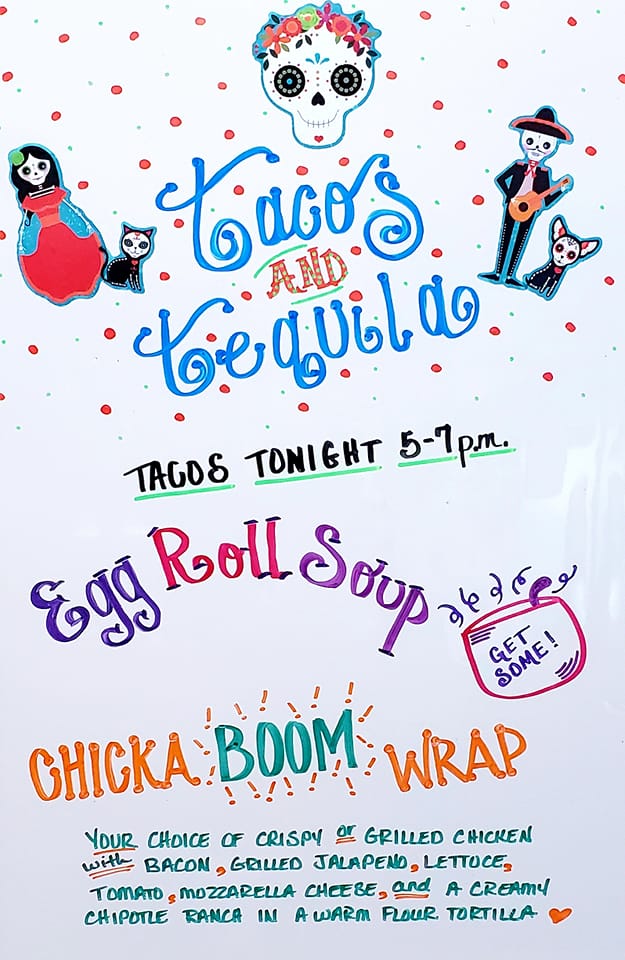 tacos
AND
tequila
TACOS TONIGHT 5-7p.m.
Egg Roll Soup
GET
SOME!
CHICKA BOOM WRAP
YOUR CHOICE OF CRISPY or GRILLED CHICKEN
with BACON, GRILLED JALAPENO, LETTUCE,
TOMATO, MOZZARELLA CHEESE, and A CREAMY
CHIPOTLE RANCH IN A WARM FLOUR TORTILLA